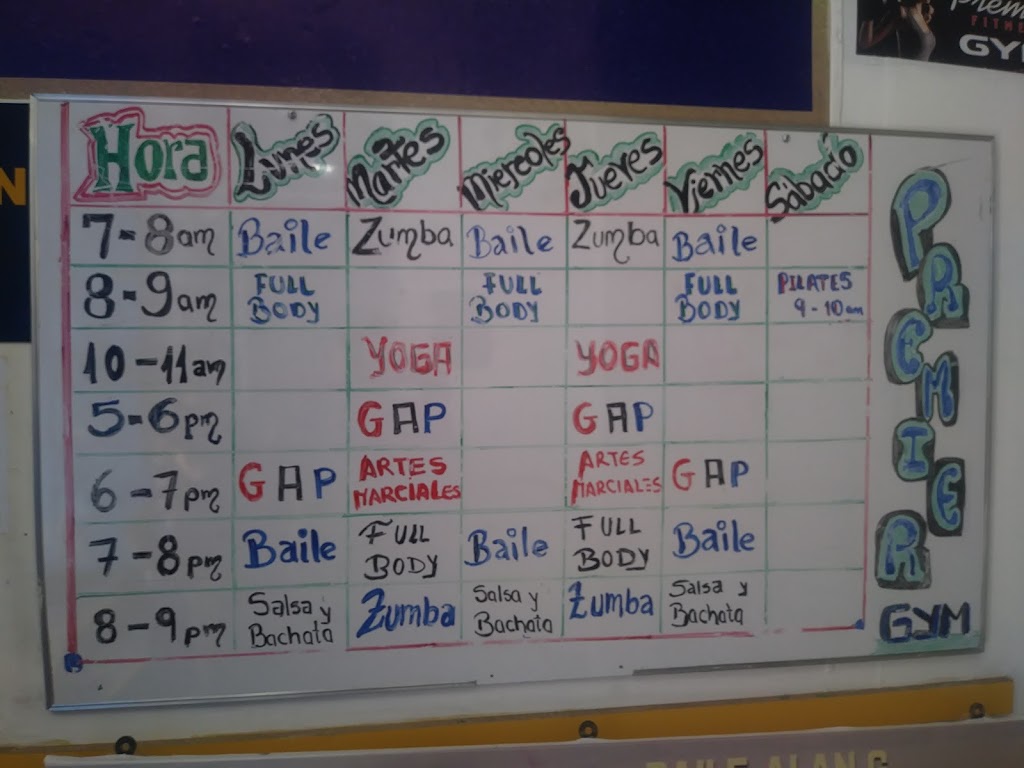 Premi
FITNE
GYM
N
Hora Lunes Martes Miercoles Jueves Viernes Sábado
7-8am Baile Zumba Baile Zumba Baile
8-9am FULL BODY FULL BODY FULL BODY PILATES 9-10am
10-11am YOGA YOGA
5-6pm GAP GAP
6-7pm GAP ARTES MARCIALES ARTES MARCIALES GAP
7-8pm Baile FULL BODY Baile FULL BODY Baile
8-9pm Salsa y Bachata Zumba Salsa y Bachata Zumba Salsa y Bachata
PREMIER
GYM